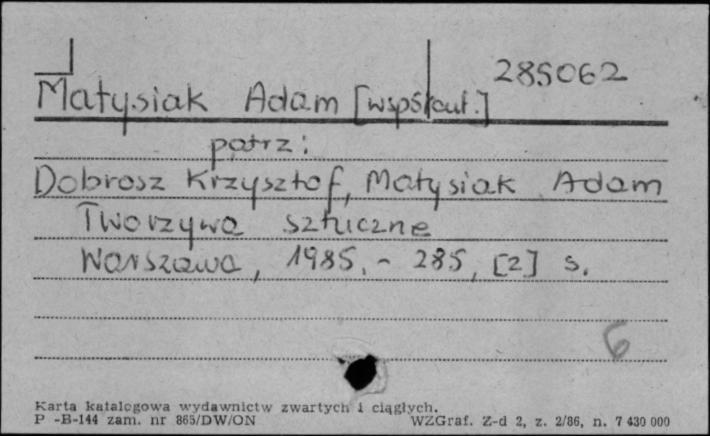 285062
Matysiak Adam [współaut.]
patrz:
Dobrosz Krzysztof, Matysiak Adam
Tworzywa sztuczne
Warszawa, 1985. - 285, [2] s.
6
Karta katalogowa wydawnictw zwartych i ciągłych.
P -B-144 zam. nr 865/DW/ON WZGraf. Z-d 2, z. 2/86, n. 7 430 000